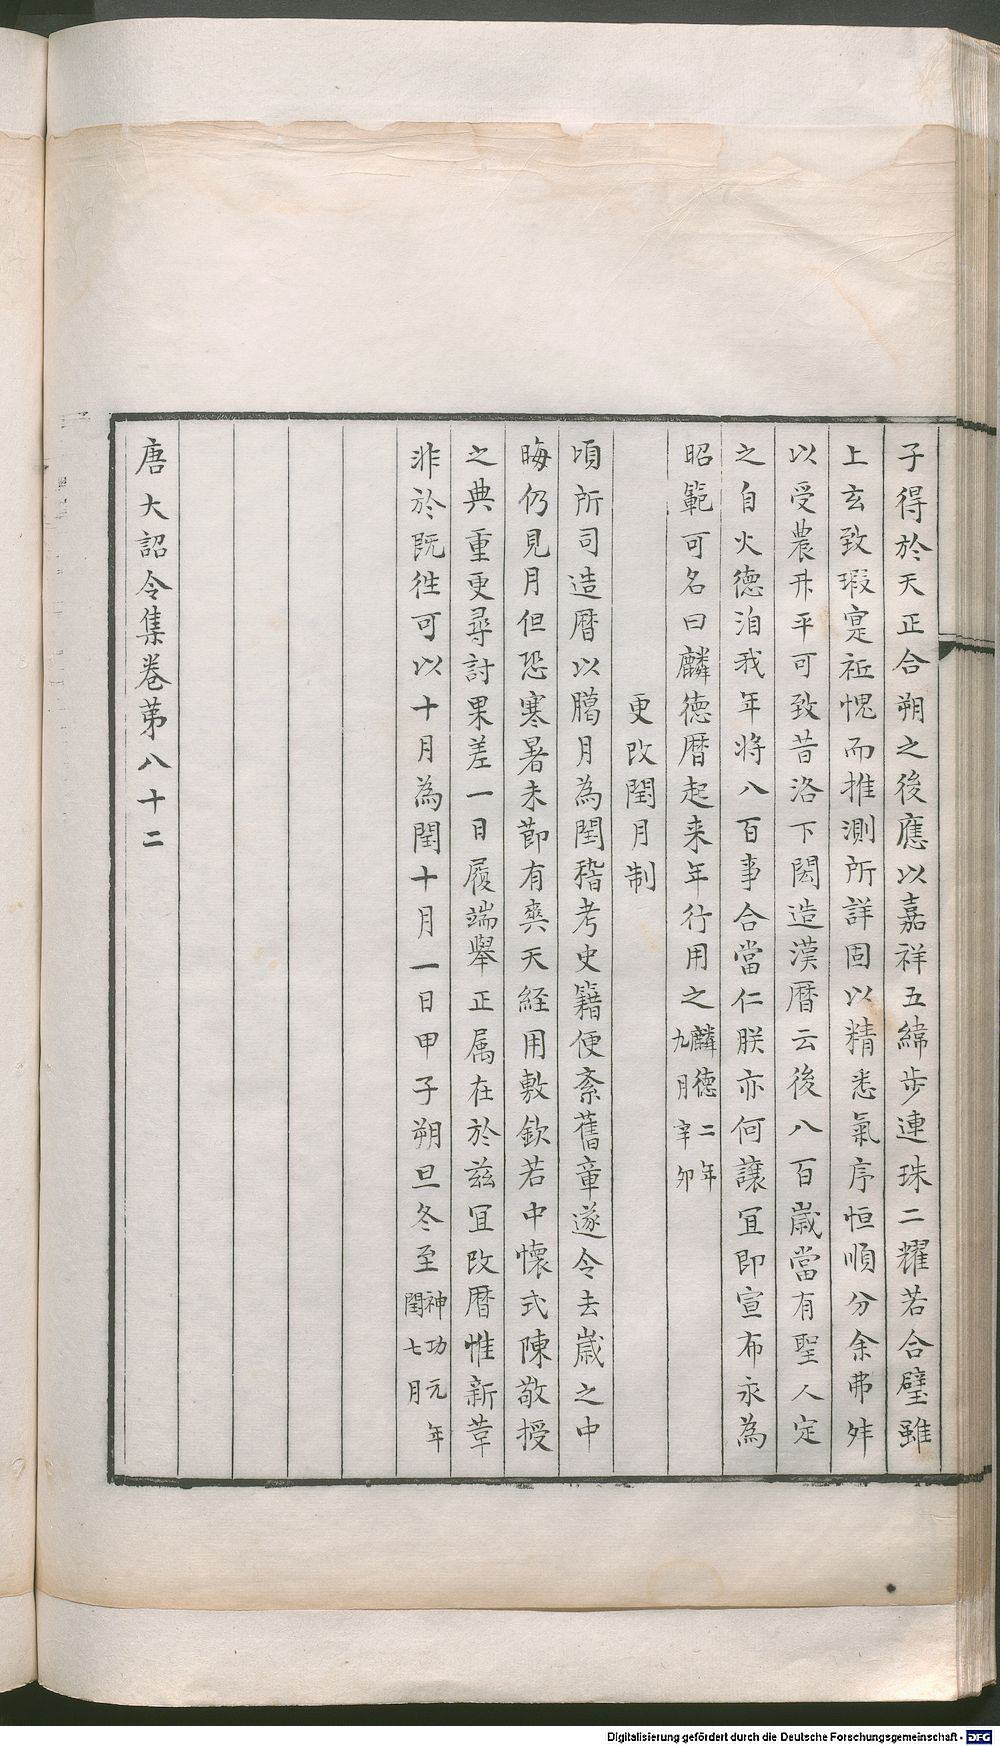 子得於天正合朔之後應以嘉祥五緯步連珠二耀若合璧雖
上玄致瑕寔祗愧而推測所詳固以精悉氣序恒順分余弗舛
以受農升平可致昔洛下閎造漢曆云後八百歲當有聖人定
之自火德洎我年将八百事合當仁朕亦何讓宜即宣布永為
昭範可名曰麟德曆起来年行用之麟德二年
九月辛卯
更改閏月制
頃所司造曆以臈月為閏稽考史籍便紊舊章遂令去歲之中
晦仍見月但恐寒暑未節有爽天経用敷欽若中懷式陳敬授
之典重更尋討果差一日履端舉正属在於兹宜改曆惟新革
非於既徃可以十月為閏十月一日甲子朔旦冬至神功元年
閏七月
唐大詔令集卷苐八十二
Digitalisierung gefördert durch die Deutsche Forschungsgemeinschaft - DFG